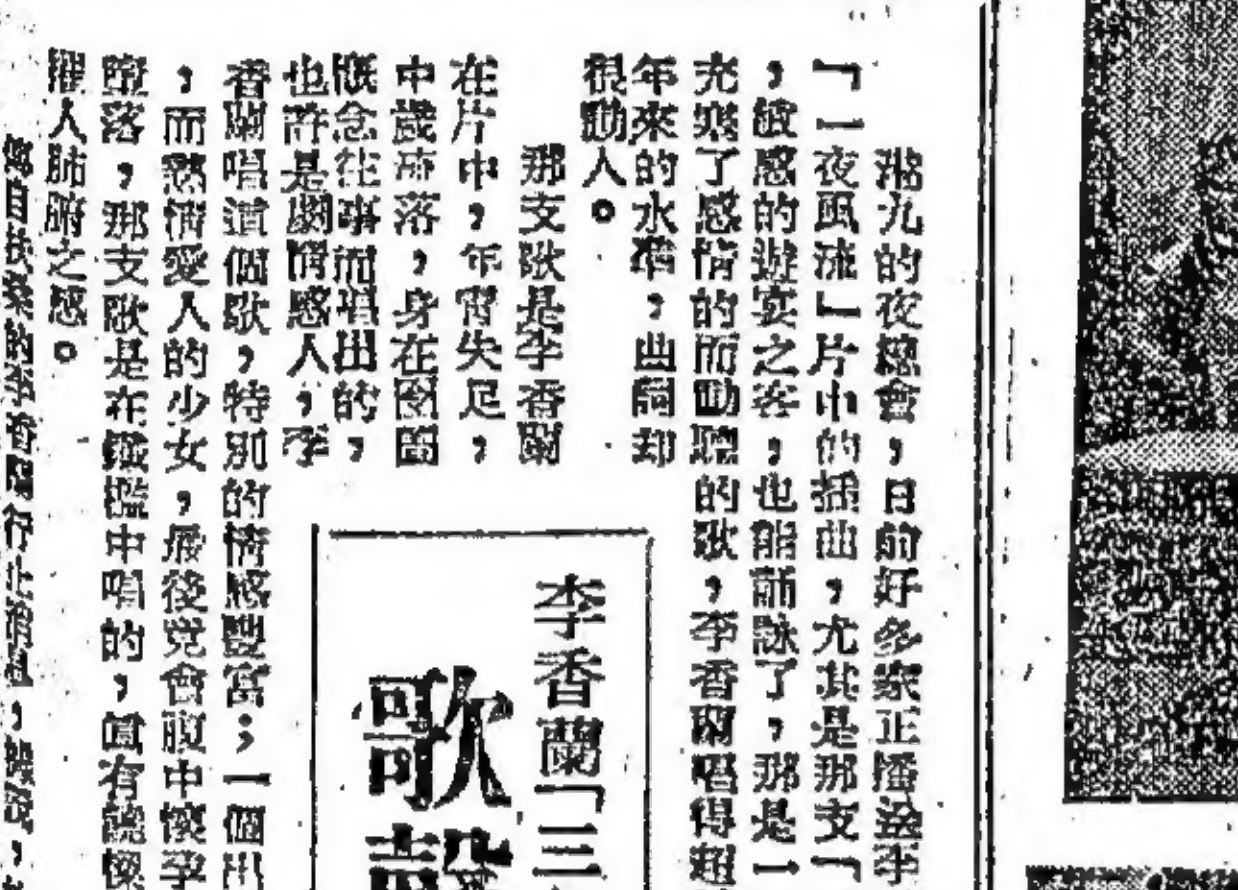 港九的夜總會，日前好多家正播送李
「一夜風流」片中的插曲，尤其是那支「
，敏感的遊宴之客，也能訴詠了，那是一
充澈了感情的而動聽的歌，李香蘭唱得超
年來的水準，曲詞却
很動人。
那支歌是李香蘭
在片中，年靑失足，
中歲淪落，身在囹圄
懷念往事而唱出的，
也許是劇情感人，李
香蘭唱這個歌，特別的情感豐富；一個出
，而熱情愛人的少女，最後竟會腹中懷孕
墮落，那支歌是在鐵檻中唱的，眞有
摧人肺腑之感。
自扶桑的李香蘭行止
李香蘭「三
歌聲